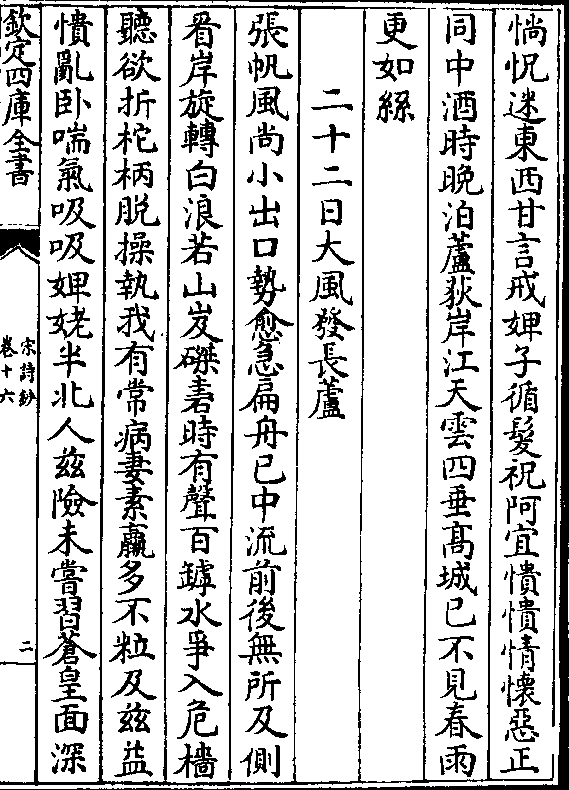 惝怳迷東西甘言戒婢子循髮祝阿宜憒憒情懷惡正
同中酒時晚泊蘆荻岸江天雲四垂髙城已不見春雨
更如絲
二十二日大風發長蘆
張帆風尚小出口勢愈急扁舟已中流前後無所及側
看岸旋轉白浪若山岌磔砉時有聲百罅水爭入危檣
聽欲折柁柄脱操執我有常病妻素羸多不粒及兹益
憒亂卧喘氣吸吸婢姥半北人兹險未嘗習蒼皇面深
欽定四庫全書
宋詩鈔
卷十六
二